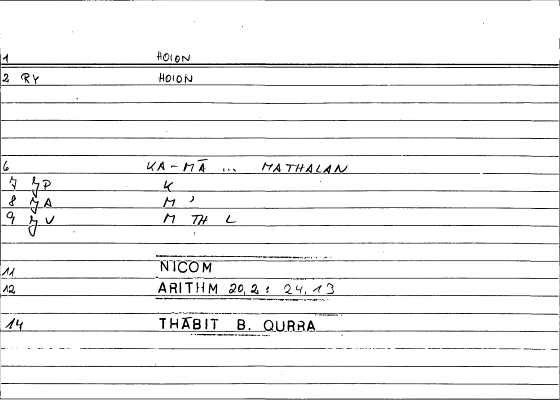 1 HOION
2 RY HOION
6 KA-MĀ ... MATHALAN
7 JP K
8 JA M '
9 JV M TH L
11 NICOM
12 ARITHM 20,2: 24,13
14 THĀBIT B. QURRA